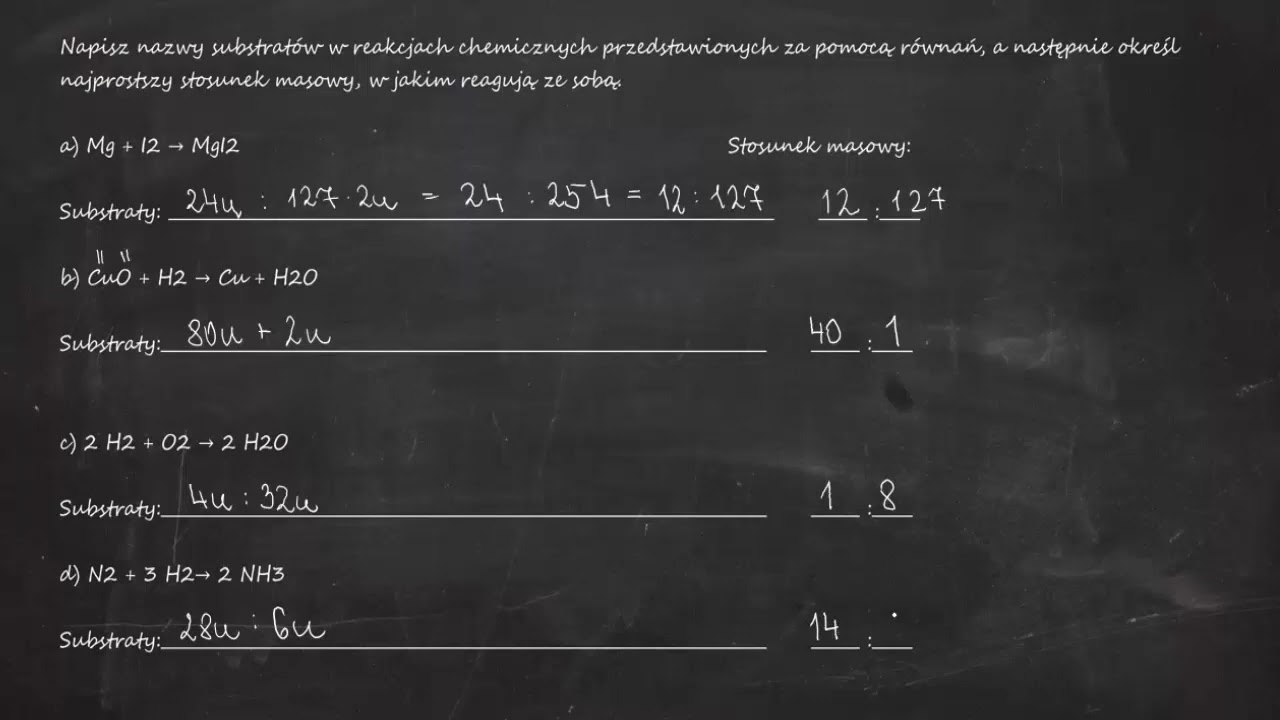 Napisz nazwy substratów w reakcjach chemicznych przedstawionych za pomocą równań, a następnie określ
najprostszy stosunek masowy, w jakim reagują ze sobą.
a) Mg + I2 → MgI2 Stosunek masowy:
Substraty: 24u : 127·2u = 24 : 254 = 12 : 127 12 : 127
II II
b) CuO + H2 → Cu + H2O
Substraty: 80u + 2u 40 : 1
c) 2 H2 + O2 → 2 H2O
Substraty: 4u : 32u 1 : 8
d) N2 + 3 H2→ 2 NH3
Substraty: 28u : 6u 14 :